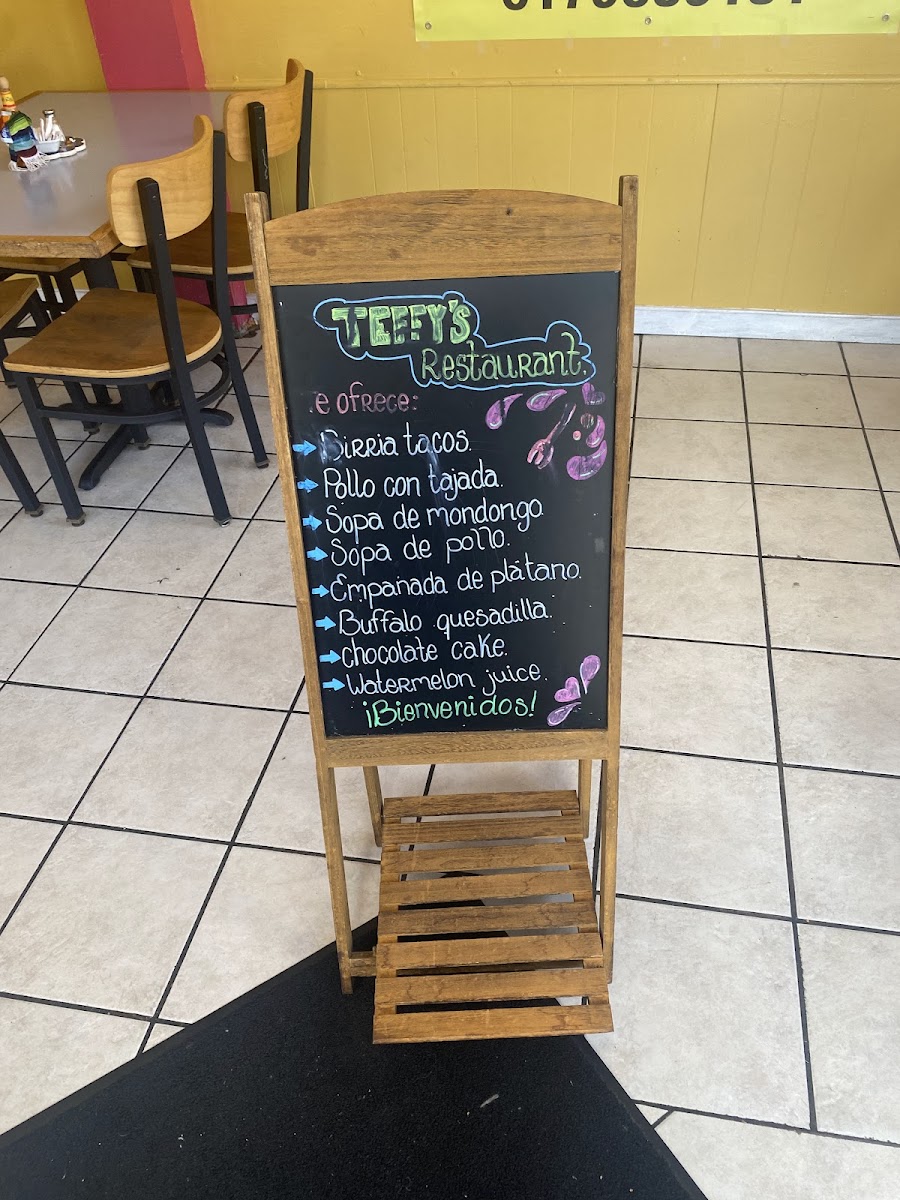 TEFFY'S
Restaurant.
e ofrece:
Birria tacos.
Pollo con tajada.
Sopa de mondongo
Sopa de pollo.
Empanada de plátano.
Buffalo quesadilla.
Chocolate cake.
Watermelon juice.
¡Bienvenidos!